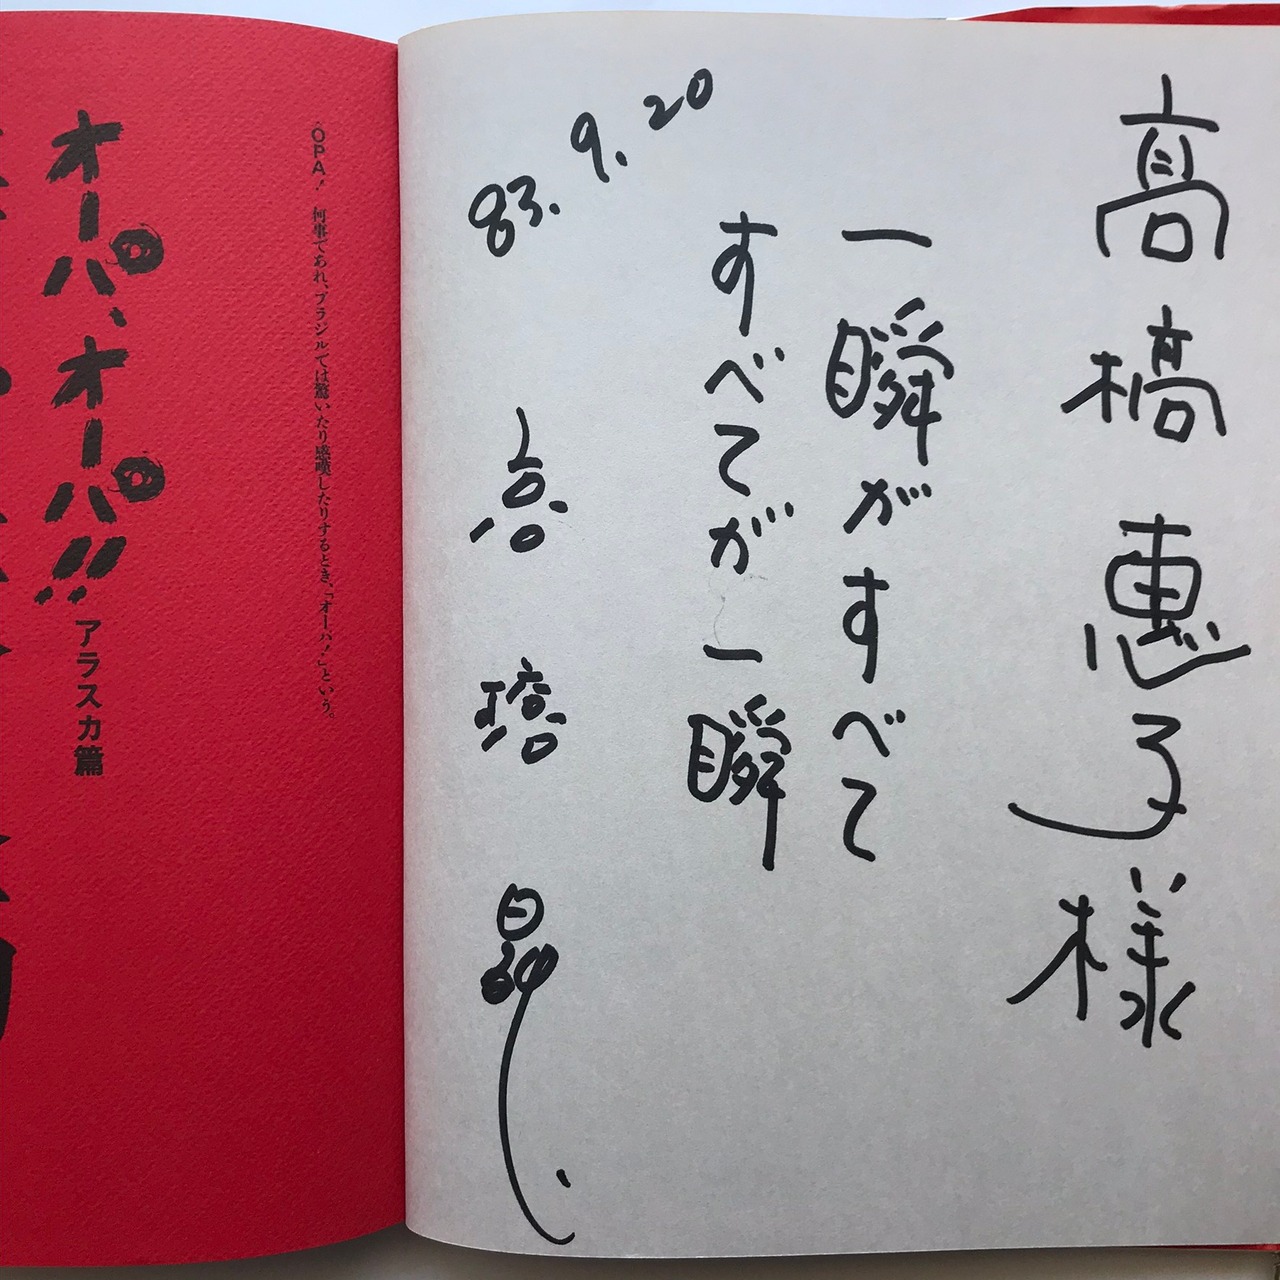 高橋惠子様
一瞬がすべて
すべてが一瞬
83. 9. 20
高橋曻
OPA! 何事であれ、ブラジルでは驚いたり感嘆したりするとき、「オーパ!」という。
オーパ、オーパ!! アラスカ篇